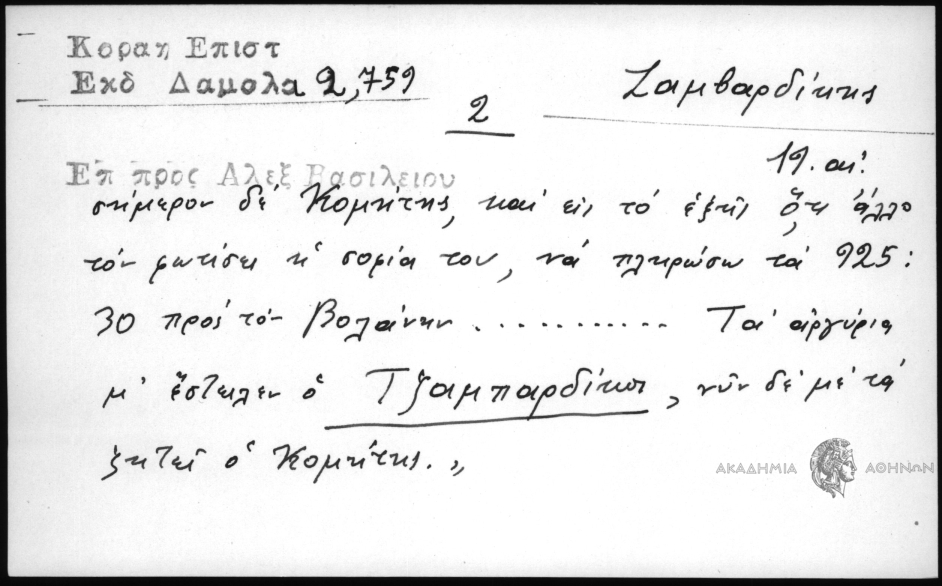 Κοραη Επιστ
Εκδ Δαμαλα 2,759
2
Ζαμβαρδίκης
19. αι.
Επ προς Αλεξ Βασιλειου
σήμερον δέ Κομήτης, καί εἰς τό ἑξῆς ὅ,τι ἄλλο
τόν φωτίσει ἡ σοφία του, νά πληρώσω τά 925:
30 πρός τόν Βολάνην ............ Τά ἀργύρια
μ' ἔστειλεν ὁ Τζαμπαρδίκης, νῦν δέ μέ τά
ζητεῖ ὁ Κομήτης.»
ΑΚΑΔΗΜΙΑ ΑΘΗΝΩΝ